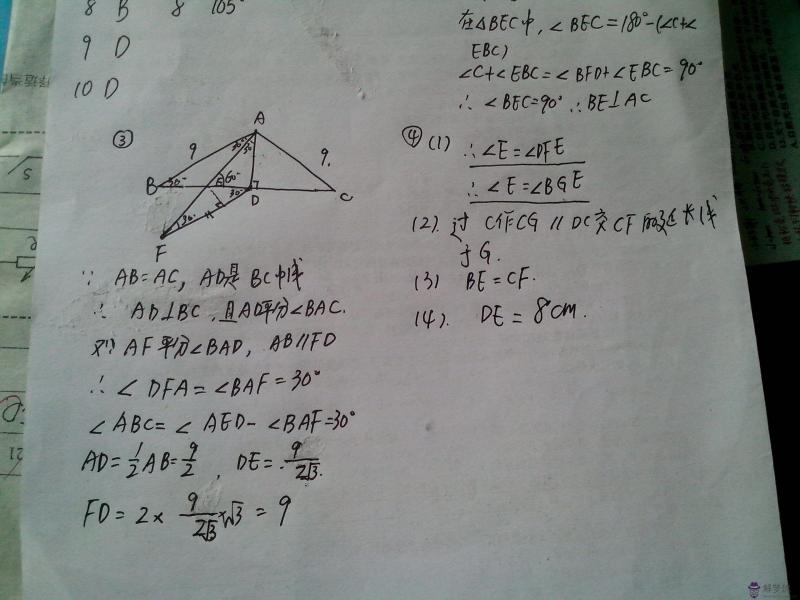 8 B 8 105°
9 D
10 D
在△BEC中,∠BEC=180°-(∠C+∠
EBC)
∠C+∠EBC=∠BFD+∠EBC=90°
∴ ∠BEC=90° ∴BE⊥AC
③
A
9
9.
30°
30°
B
30°
E
60°
30°
D
C
30°
F
∵ AB=AC, AD是BC中线
∴ AD⊥BC,且AD平分∠BAC.
又∵AF平分∠BAD, AB∥FD
∴∠DFA=∠BAF=30°
∠ABC=∠AED-∠BAF=30°
AD=1/2AB=9/2, DE=9/2√3.
FD=2×9/2√3×√3=9
④(1) ∴∠E=∠DFE
∴∠E=∠BGE
(2). 过C作CG∥DC交CF的延长线
于G.
(3) BE=CF.
(4). DE=8cm.
解梦佬